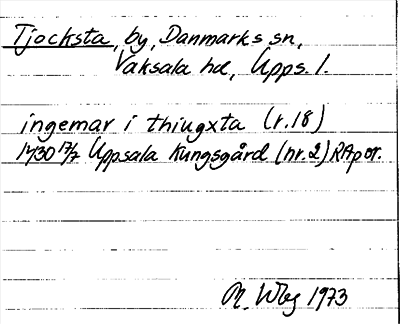 Tjocksta, by, Danmarks sn,
Vaksala hd, Upps. l.
ingemar i thiugxta (r. 18)
1430 17/7 Uppsala Kungsgård (nr. 2) RAp or.
M. Wbg 1973